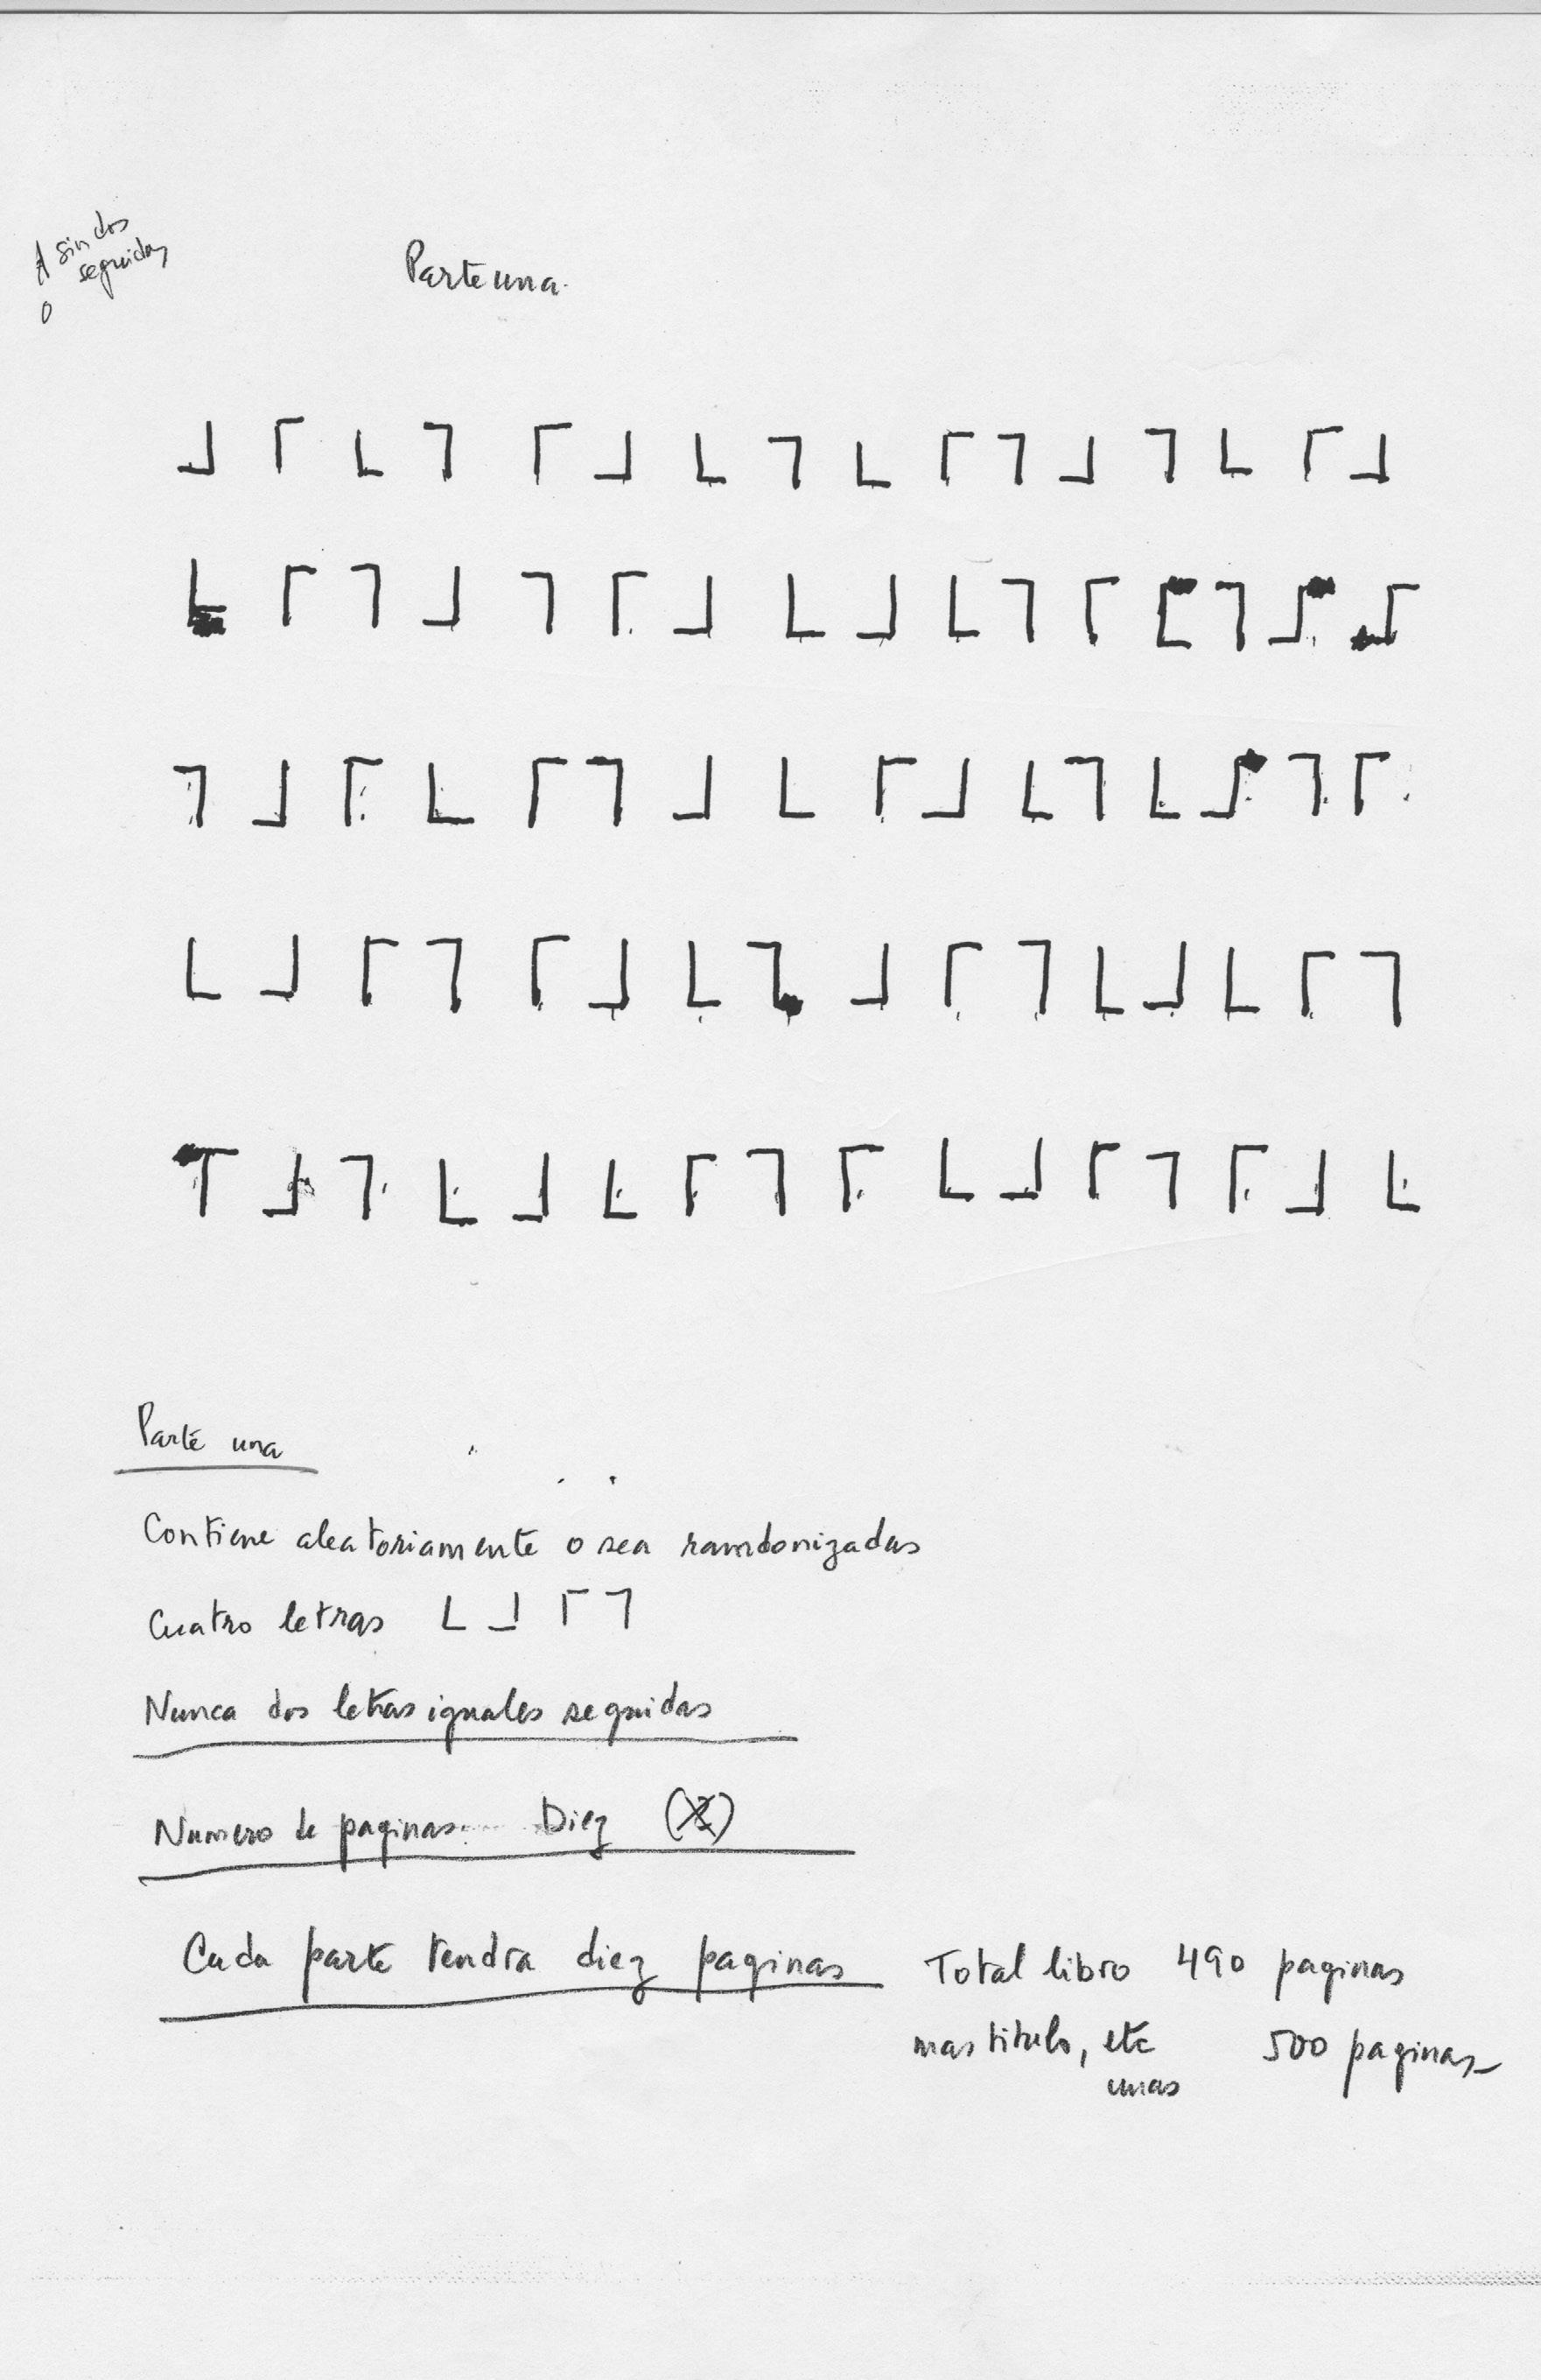 A sin dos
seguidas
o
Parte una.
┘ ┌ └ ┐ ┌ ┘ └ ┐ └ ┌ ┐ ┘ ┐ └ ┌ ┘
└ ┌ ┐ ┘ ┐ ┌ ┘ └ ┘ └ ┐ ┌ └ ┐ ┘ ┌
┐ ┘ ┌ └ ┌ ┐ ┘ └ ┌ ┘ └ ┐ └ ┘ ┐ ┌
└ ┘ ┌ ┐ ┌ ┘ └ ┐ ┘ ┌ ┐ └ ┘ └ ┌ ┐
┌ ┘ ┐ └ ┘ └ ┌ ┐ ┌ └ ┘ ┌ ┐ ┌ ┘ └
Parte una
Contiene aleatoriamente o sea ramdonizadas
Cuatro letras └ ┘ ┌ ┐
Nunca dos letras iguales seguidas
Numero de paginas Diez
Cada parte tendra diez paginas
Total libro 490 paginas
mas titulo, etc 500 paginas
unas